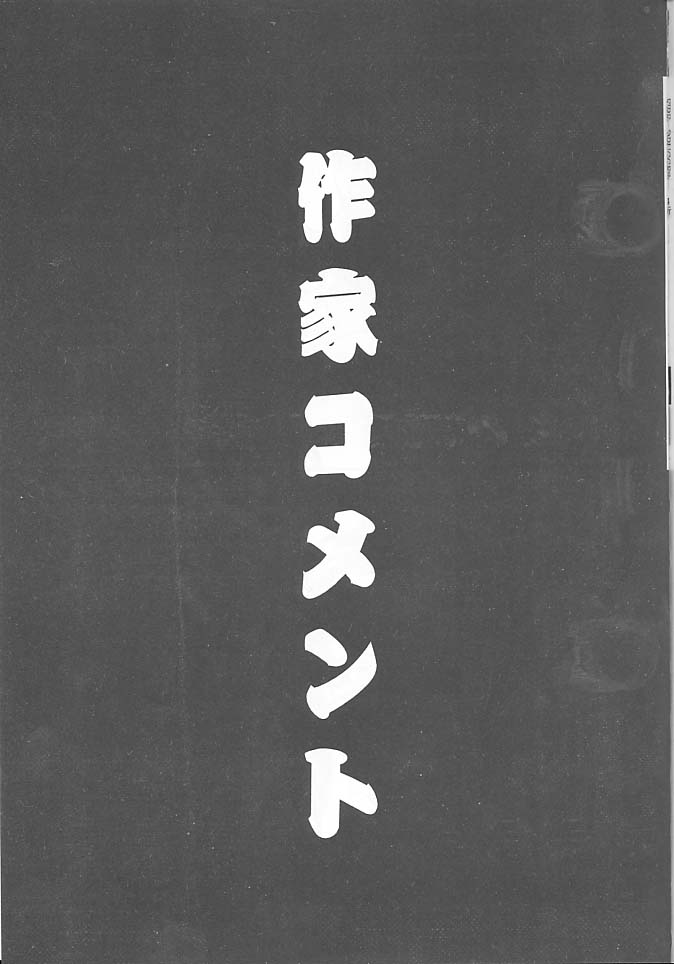 作家コメント